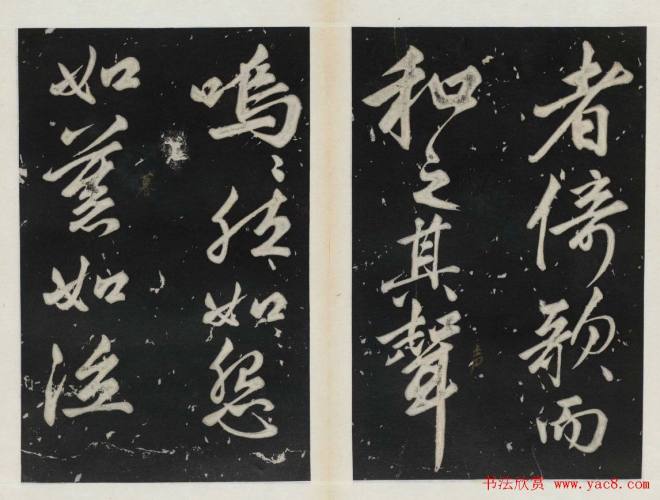 者倚歌而
和之其聲
嗚嗚然如怨
如慕如泣
书法欣赏 www.yac8.com